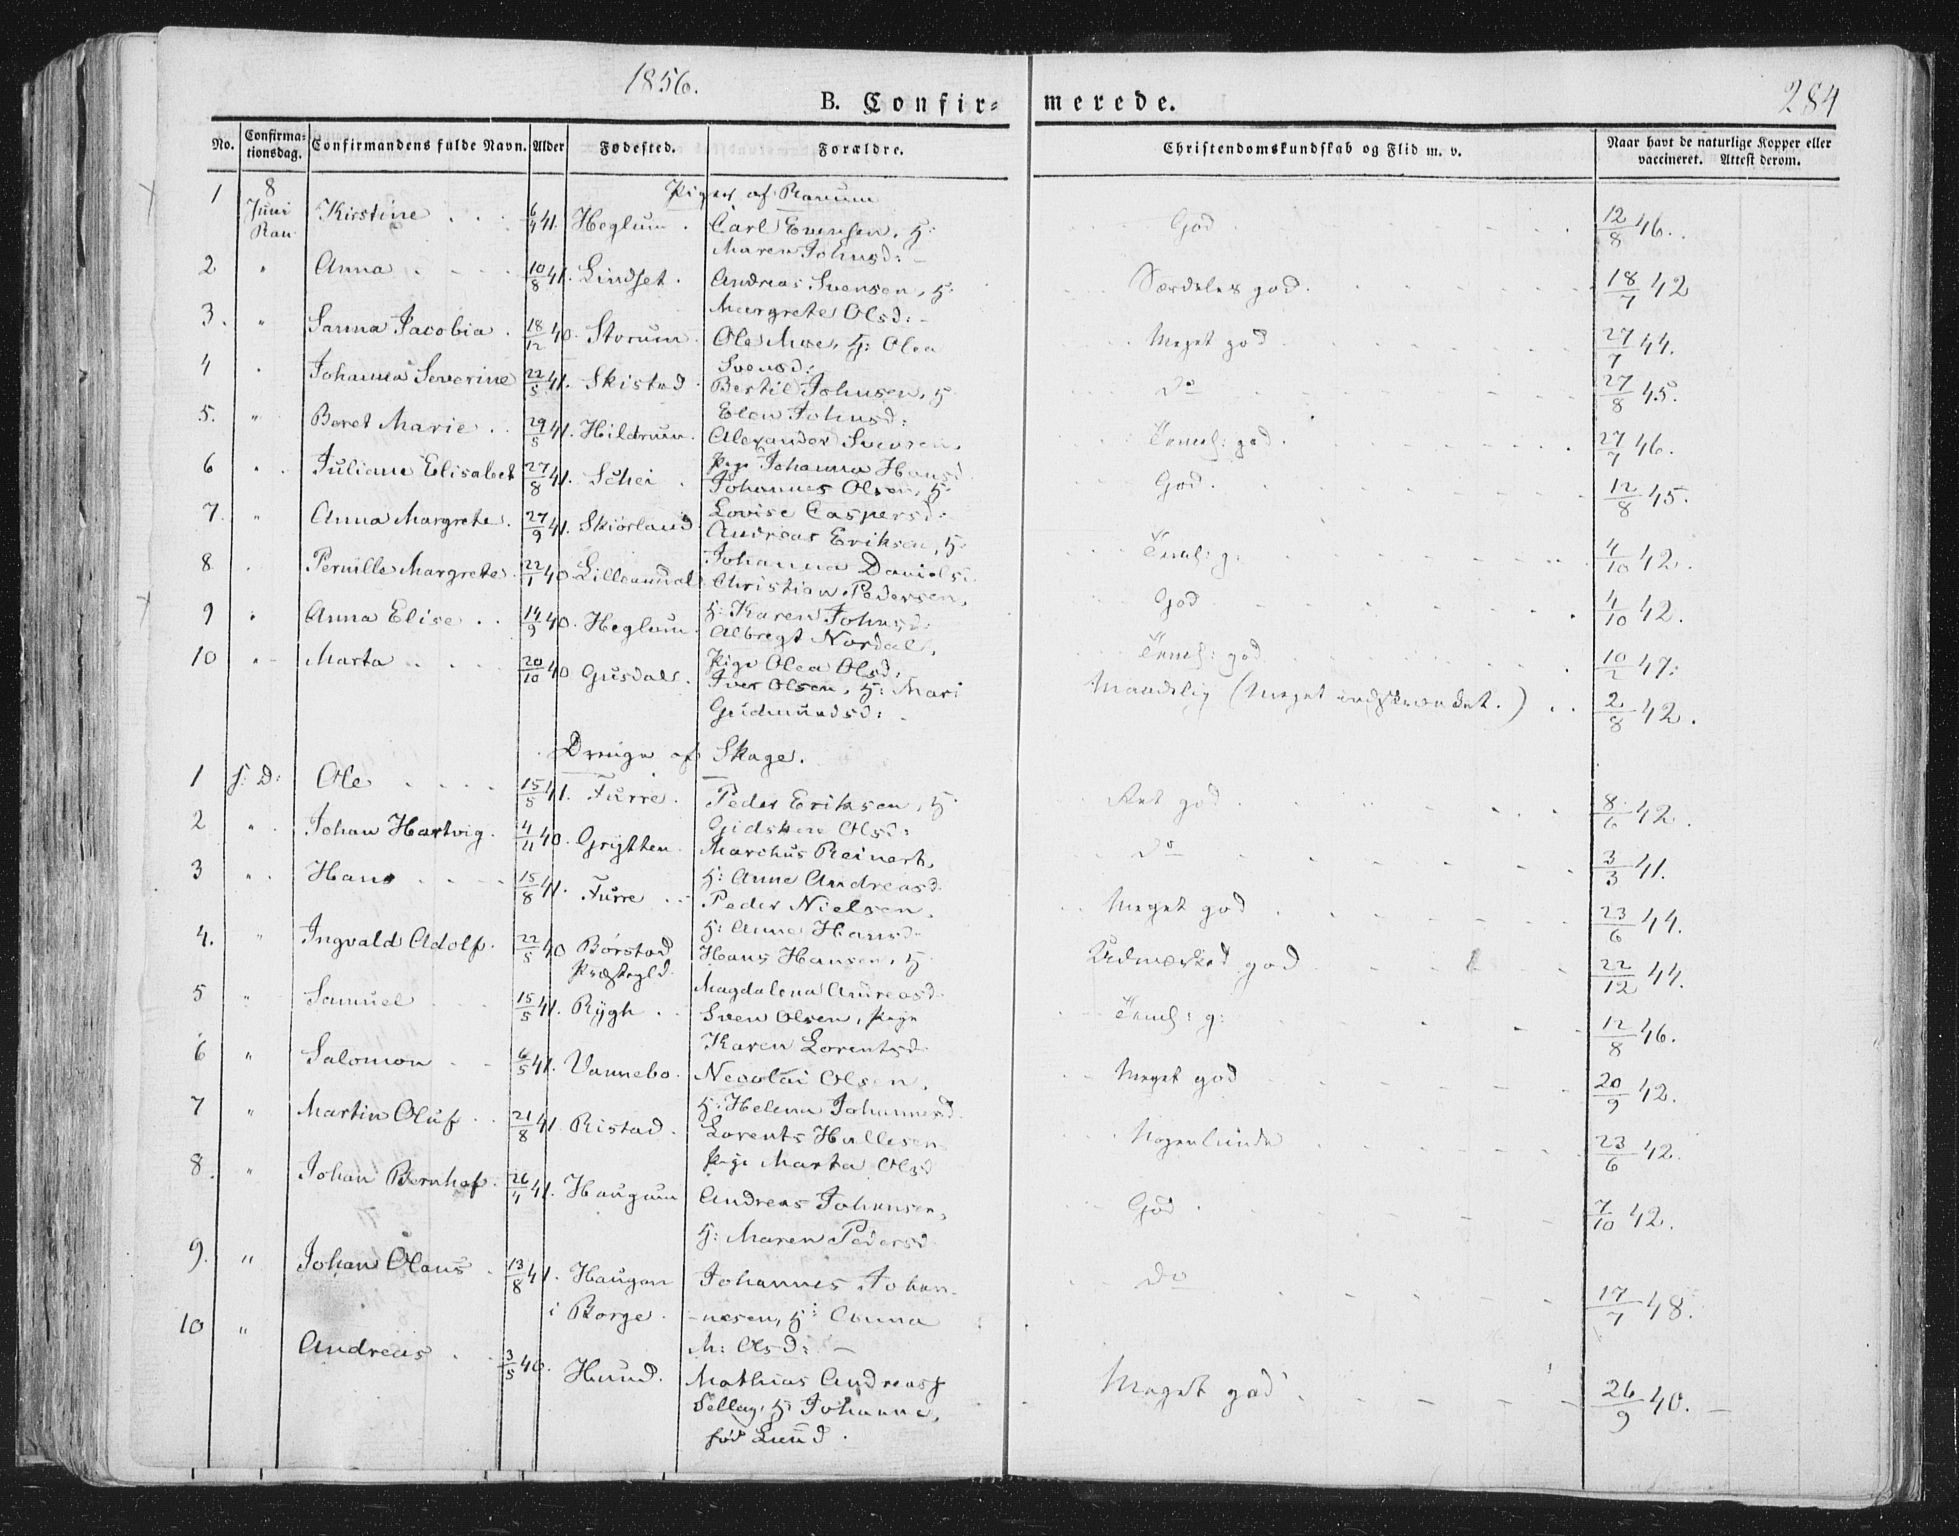 1856.
284
B. Confir-merede.
No. Confirma-tionsdag. Confirmandens fulde Navn. Alder Fødested. Forældre. Christendomskundskab og Flid m. v. Naar havt de naturlige Kopper eller vaccineret. Attest derom.
Piger af Ranum
1 8 Juni Ran Kirstine 6/4 41. Heglum. Carl Evensen, H: God 12/8 46.
Maren Johnsd:
2 " Anna 10/8 41. Lindset. Andreas Svensen, H: Særdeles god. 18/7 42
Margrete Olsd:
3. " Sanna Jacobia 18/12 40. Storum. Ole Moe, H: Olea Meget god 27/7 44.
Svensd:
4 " Johanna Severine 22/5 41. Skistad Bertil Johnsen, H: Do 27/8 45.
Elen Johnsd:
5. " Beret Marie 29/5 41. Hildrum. Alexander Svensen, Temel: god. 27/7 46.
Pige Johanna Hansd
6 " Juliane Elisabet 27/8 41. Schei Johannes Olsen, H: God. 12/8 45.
Lovise Caspersd:
7. " Anna Margrete. 27/9 41. Skiørland Andreas Eriksen, H: Temel: g: 4/10 42.
Johanna Danielsd
8. " Pernille Margrete 22/1 40 Lilleamdal Christian Pedersen, God 4/10 42.
H: Karen Johnsd:
9 " Anna Elise 14/9 40. Heglum Albregt Nordal, Temel: god 10/2 47.
Pige Olea Olsd:
10 " Marta 20/10 40 Gusdal. Iver Olsen, H: Mari Maadelig (Meget indskrænket.) 2/8 42.
Gudmundsd:
Drenge af Skage.
1 s: D: Ole 15/5 41. Fürre. Peder Eriksen, H: Ret god 8/6 42.
Gidsken Olsd:
2 " Johan Hartvig. 4/11 40. Grytten. Marchus Reinert, Do 3/3 41.
H: Anne Andreasd
3 " Hans 15/8 41. Fürre Peder Nielsen, Meget god 23/6 44.
H: Anne Hansd:
4. " Ingvald Adolf. 22/5 40 Børstad Hans Hansen, H: Udmærket god 22/12 44.
Præstegld. Magdalena Andreasd
5 " Samuel 15/5 41. Rygh Sven Olsen, Pige Temel: g: 12/8 46.
Karen Lorentsd
6 " Salomon 6/5 41. Vannebo. Necolai Olsen, Meget god 20/9 42.
H: Helena Johannesd
7 " Martin Oluf 21/8 41. Ristad. Lorents Hallesen Nogenlunde 23/6 42.
Pige Marta Olsd
8. " Johan Bernhof. 26/4 41. Haugum Andreas Johansen, God 7/10 42.
H: Maren Pedersd
9. " Johan Olaus 13/8 41. Haugen Johannes Johan- Do 17/7 48.
i Borge. -nesen, H: Conna
M: Olsd:
10 " Andreas 3/5 40. Hund. Mathias Andreas Meget god 26/9 40.
Sellæg, H: Johanna,
født Lund.